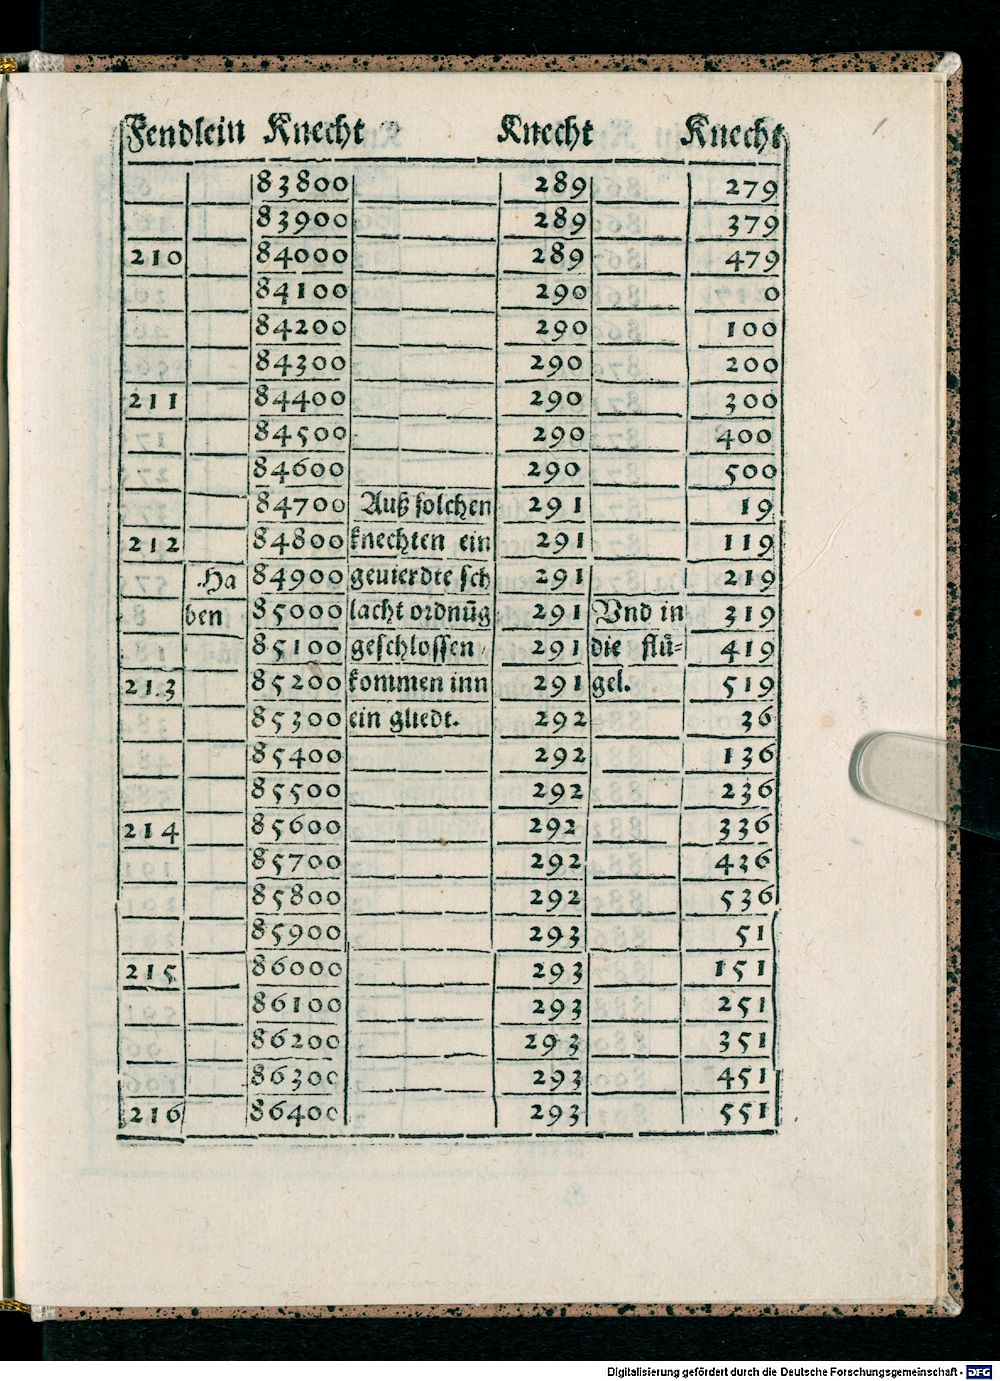 Fendlein Knecht Knecht Knecht
83800 289 279
83900 289 379
210 84000 289 479
84100 290 0
84200 290 100
84300 290 200
211 84400 290 300
84500 290 400
84600 290 500
84700 Auß solchen 291 19
212 84800 knechten ein 291 119
Ha 84900 geuierdte sch 291 219
ben 85000 lacht ordnūg 291 Vnd in 319
85100 geschlossen 291 die flü⸗ 419
213 85200 kommen inn 291 gel. 519
85300 ein gliedt. 292 36
85400 292 136
85500 292 236
214 85600 292 336
85700 292 436
85800 292 536
85900 293 51
215 86000 293 151
86100 293 251
86200 293 351
86300 293 451
216 86400 293 551
Digitalisierung gefördert durch die Deutsche Forschungsgemeinschaft - DFG